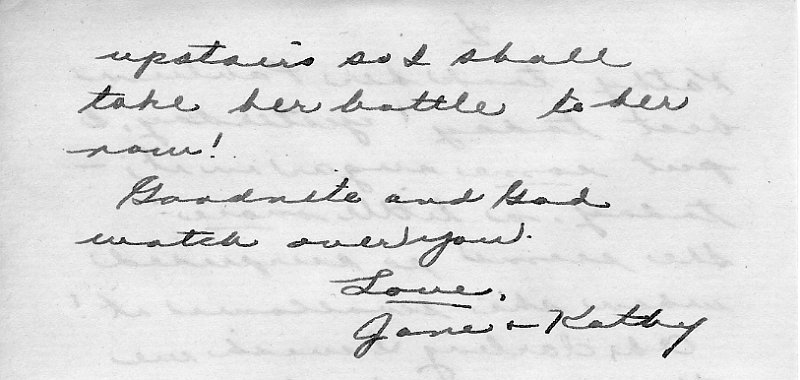 upstairs so I shall
take her bottle to her
now!
Goodnite and God
watch over you.
Love,
Jane + Kathy